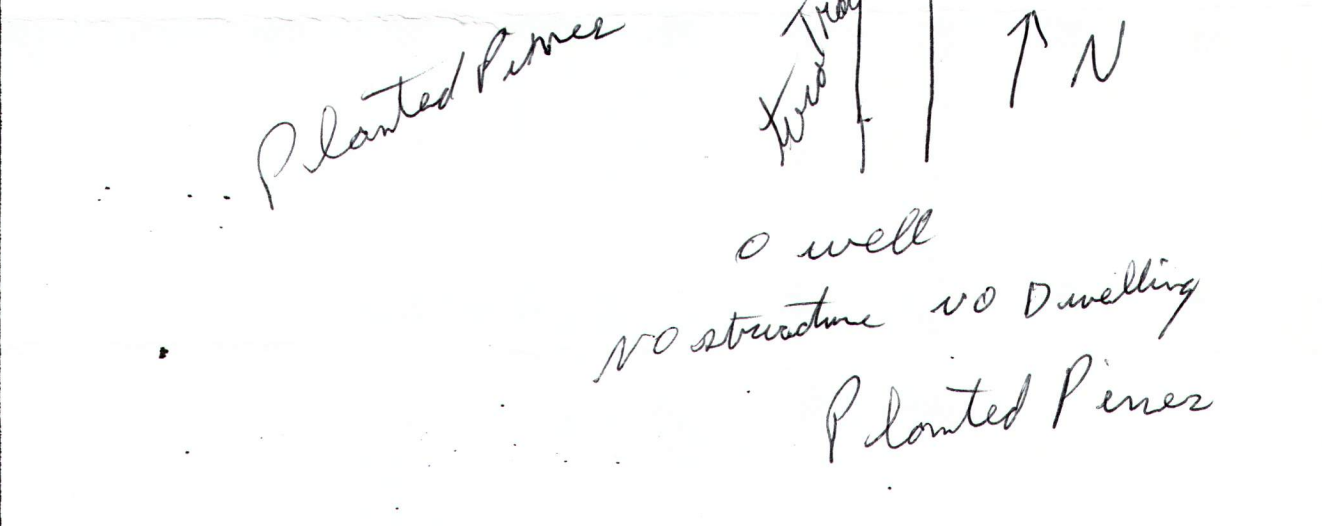 Planted Pines
two
N
o well
NO structure NO Dwelling
Planted Pines